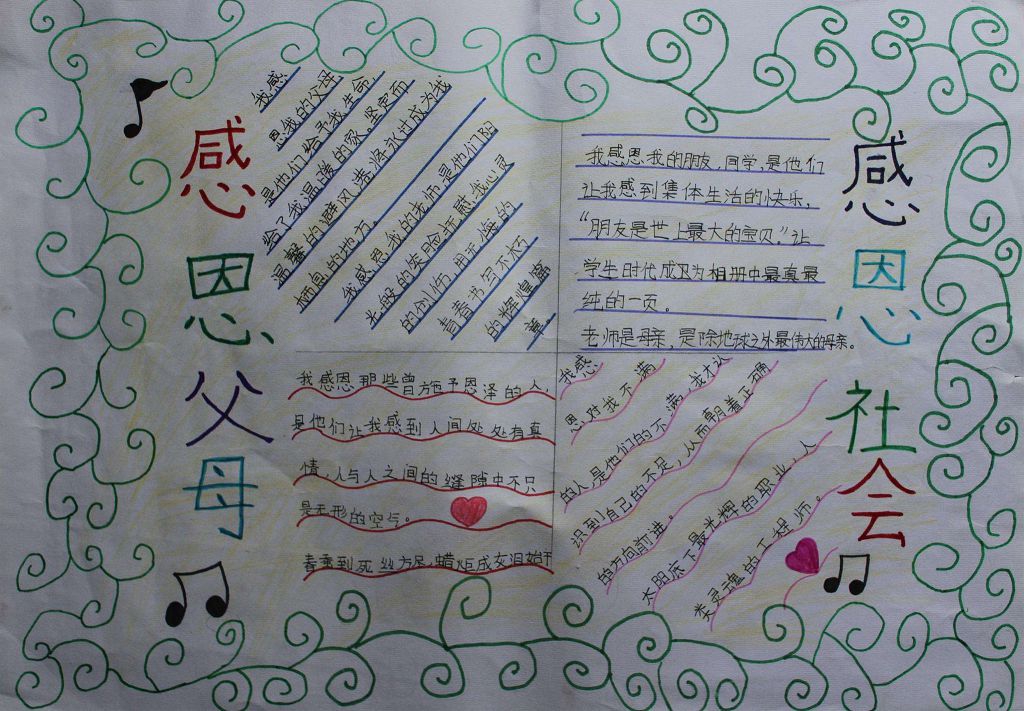 感恩父母
我感
恩我的父母
是他们给予我生命,
给了我温暖的家。坚定而
温馨的避风港,将永过成为我
栖息的地方。
我感恩我的老师,是他们阳
光般的笑脸抚慰我心灵
的创伤,用无悔的
青春书写不朽
的辉煌篇
章
我感恩我的朋友,同学,是他们
让我感到集体生活的快乐,
“朋友是世上最大的宝贝。”让
学生时代成卫为相册中最真最
纯的一页。
老师是母亲,是除地球之外最伟大的母亲。
我感恩那些曾施予恩泽的人,
是他们让我感到人间处处有真
情,人与人之间的缝隙中不只
是无形的空气。
春蚕到死丝方尽,蜡炬成灰泪始干
我感
恩对我不满
的人是他们的不满我才认
识到自己的不足,从而朝着正确
的方向前进。
太阳底下最光辉的职业,人
类灵魂的工程师。
感恩社会